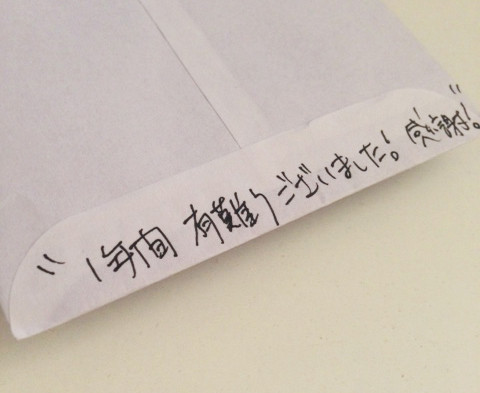 〃1年間 有難うございました！感謝！〃